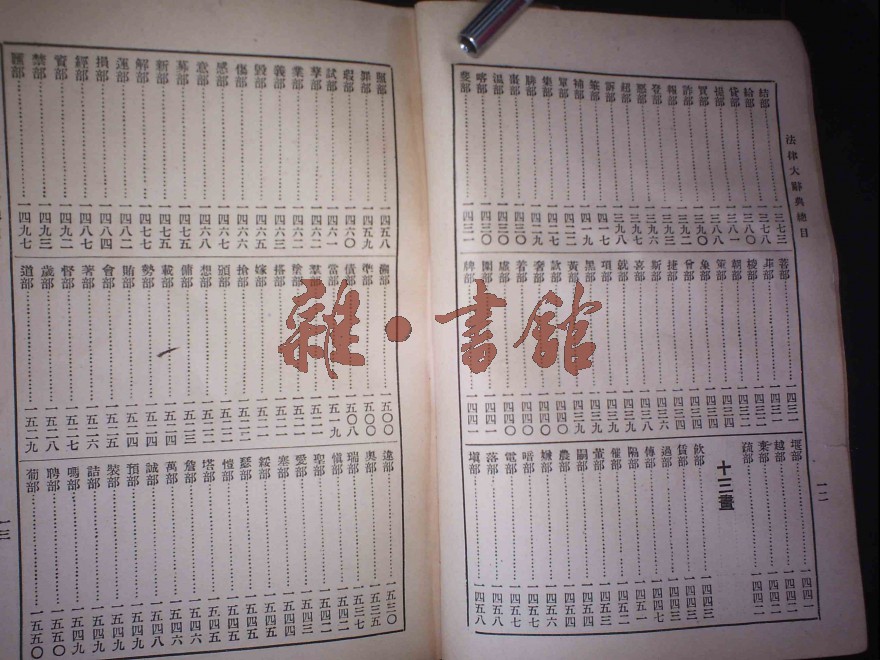 法律大辭典總目
一二
結部 一三七三
給部 一三七八
貸部 一三八〇
視部
買部 一三九〇
詐部 一三九二
報部 一三九三
登部 一三九六
惡部 一三九八
超部
訴部 一四一七
策部 一四一九
補部
單部
集部 一四二八
脾部 一四二九
裔部 一四三〇
混部 一四三〇
喀部 一四三〇
斐部 一四三一
菩部 一四三一
菲部 一四三一
稜部 一四三二
朝部
策部 一四三四
象部 一四三四
曾部 一四三四
捷部 一四三四
斯部 一四三六
喜部 一四三八
就部 一四三九
項部 一四三九
黑部 一四三九
黃部 一四三九
款部 一四四〇
奢部 一四四〇
若部 一四四〇
虛部
圍部 一四四一
牌部 一四四一
堰部 一四四一
越部 一四四二
棄部 一四四二
疏部 一四四二
十三畫
飲部 一四四三
賃部 一四四三
過部 一四四七
傳部 一四四九
隔部 一四五一
催部 一四五二
當部
嗣部 一四五四
農部 一四五四
嫌部 一四五六
暗部 一四五七
電部 一四五七
落部 一四五八
塡部 一四五八
一三
匯部 一四五八
罪部 一四五九
假部 一四六〇
試部 一四六一
草部 一四六二
業部 一四六二
義部 一四六三
毀部 一四六五
傷部 一四六六
感部 一四六八
意部 一四六八
募部 一四七五
新部 一四七五
解部 一四七七
運部 一四八二
損部 一四八四
經部 一四八七
資部 一四九二
禁部 一四九三
匯部 一四九七
幽部 一五〇〇
準部 一五〇〇
債部 一五〇八
當部 一五一九
羣部 一五二一
搭部 一五二一
嫁部 一五二一
搶部 一五二一
頒部 一五二二
想部 一五二二
傭部 一五二三
載部 一五二四
勢部 一五二四
賄部 一五二四
會部 一五二五
著部 一五二六
督部 一五二七
歲部 一五二八
道部 一五二九
違部 一五三〇
奧部 一五三五
瑞部 一五三七
愼部 一五四二
聖部 一五四二
愛部 一五四三
塞部 一五四四
綏部 一五四四
瑟部 一五四五
愷部 一五四五
塔部 一五四六
詹部 一五四六
萬部 一五四六
誠部 一五四八
預部 一五四八
裝部 一五四九
詰部 一五四九
嗎部 一五四九
聘部 一五五〇
葡部 一五五〇
雜·書館